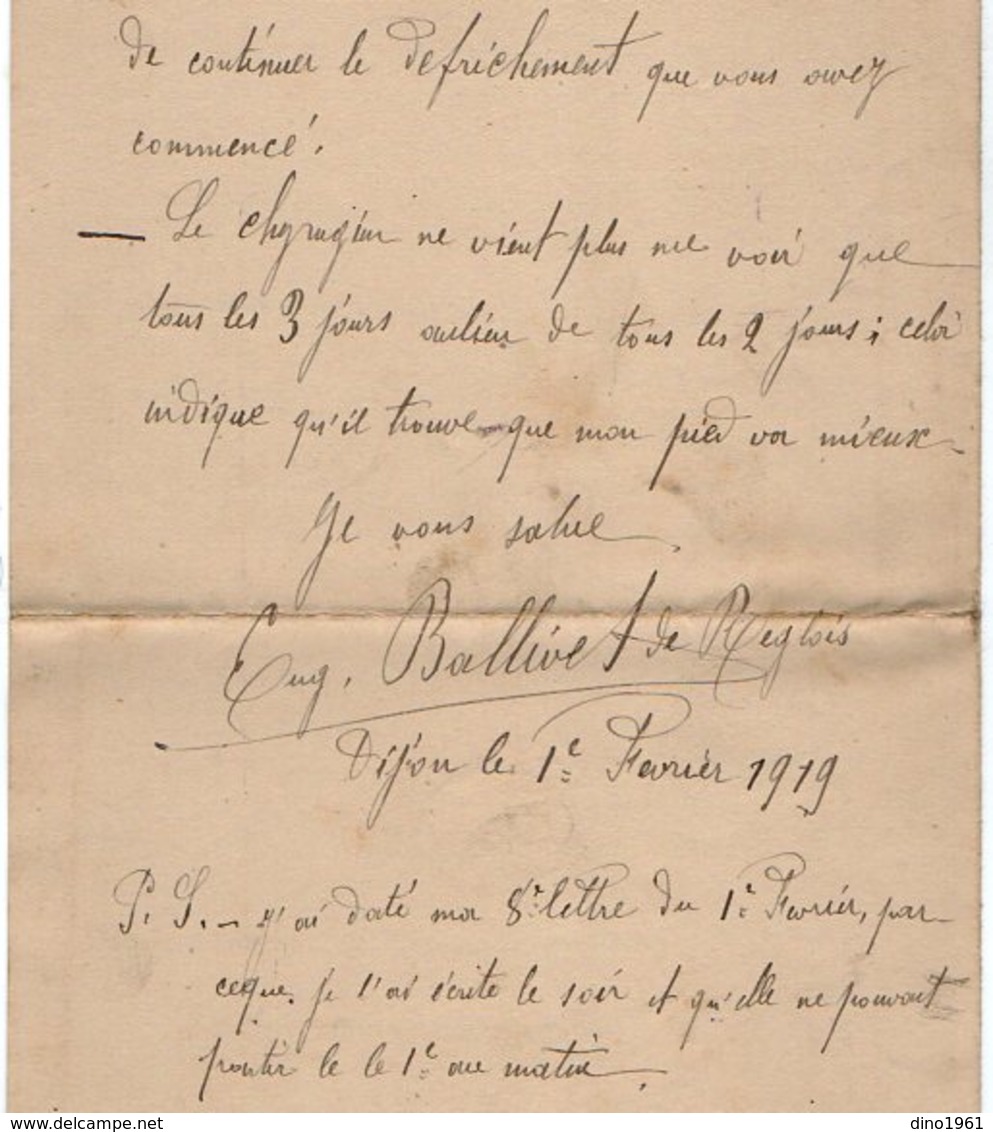 de continuer le defrichement que vous avez
commencé.
— Le chyrugien ne vient plus me voir que
tous les 3 jours aulieu de tous les 2 jours ; celà
indique qu'il trouve que mon pied va mieux
Je vous salue
Eug. Ballivet de Reglois
Dijon le 1e Fevrier 1919
P. S. – j'ai daté ma 8e lettre du 1e Fevrier, par-
ceque je l'ai écrite le soir et qu'elle ne pouvait
partir le le 1e au matin.
delcampe.net
dino1961